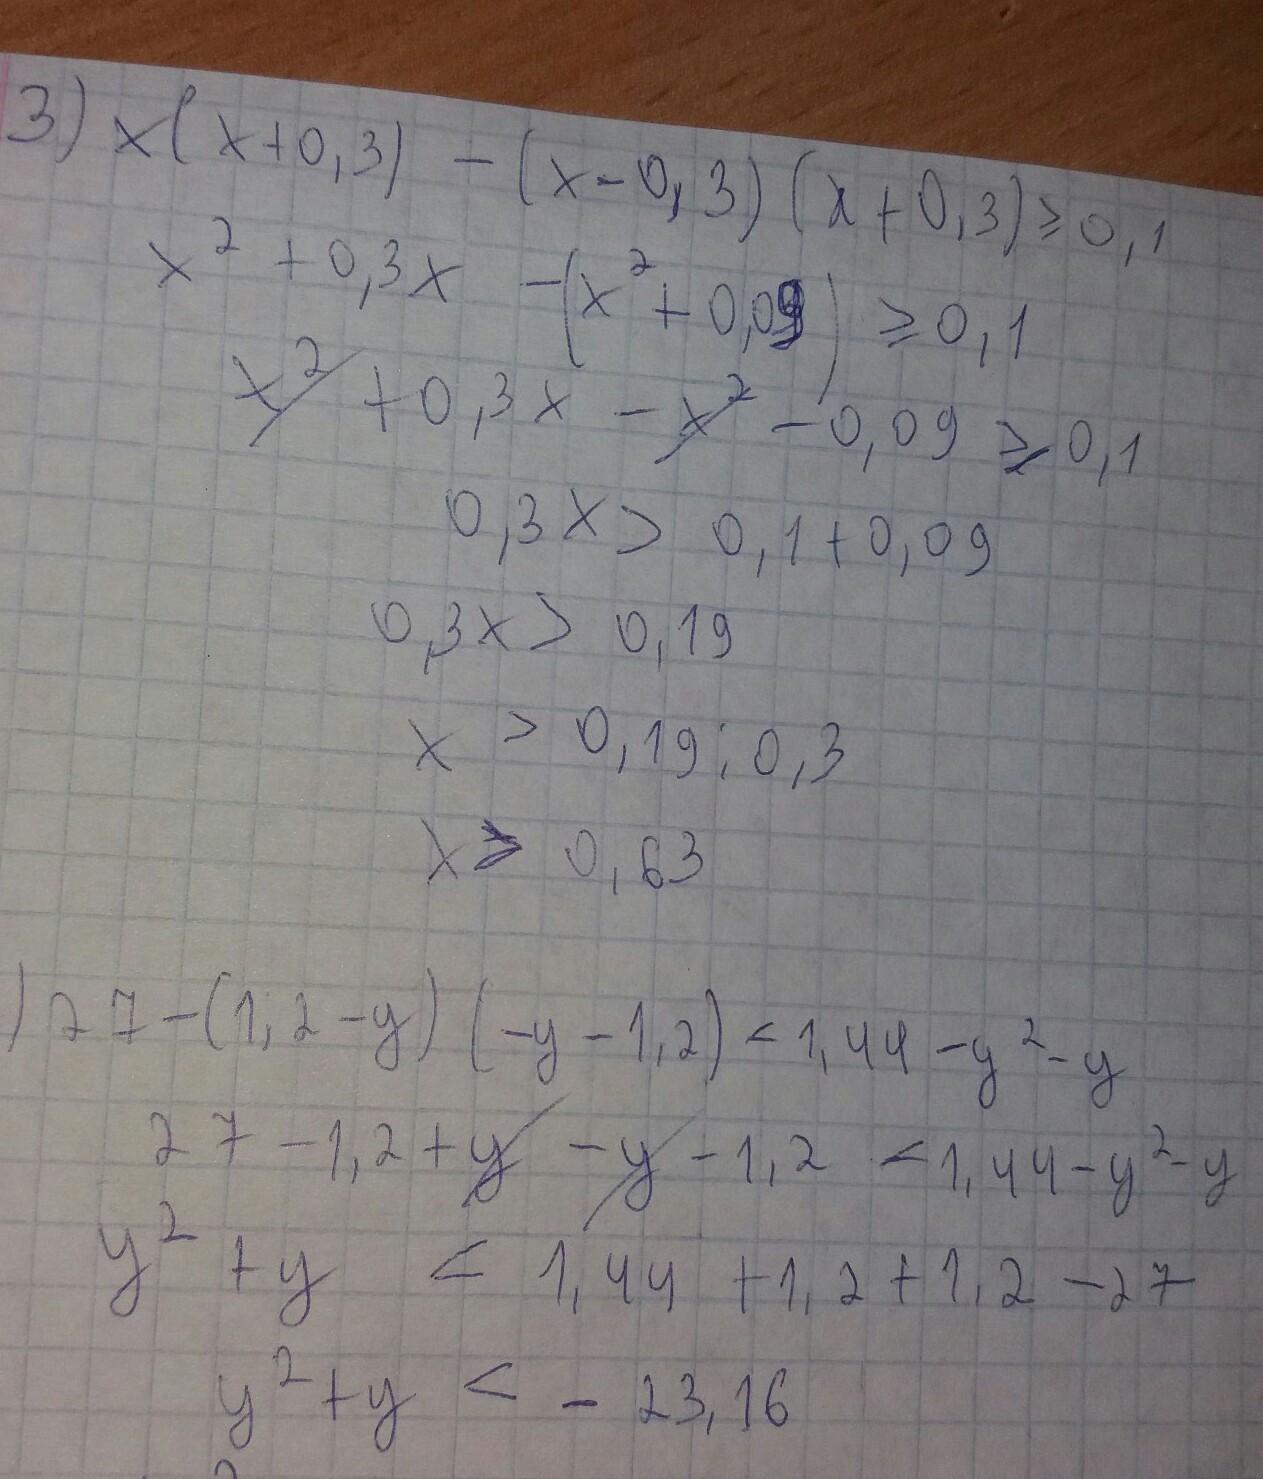 3) x(x+0,3) -(x-0,3)(x+0,3)≥0,1
x² +0,3x -(x²+0,09) ≥0,1
x² +0,3x -x² -0,09 ≥0,1
0,3x> 0,1+0,09
0,3x> 0,19
x > 0,19:0,3
x ≥ 0,63
) 27-(1,2-y)(-y-1,2)<1,44-y²-y
27-1,2+y -y-1,2 <1,44-y²-y
y² +y < 1,44 +1,2+1,2 -27
y²+y < - 23,16